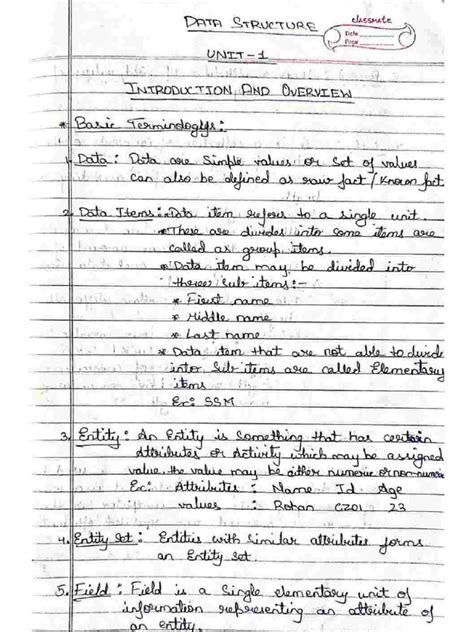 DATA STRUCTURE
classmate
Date
Page
UNIT-1
INTRODUCTION AND OVERVIEW
* Basic Terminologys:
1. Data: Data are Simple values or Set of values
can also be defined as raw fact/Known fact
2. Data Items: * Data item refers to a single unit.
* There are divides into some items are
called as group items.
* Data item may be divided into
three sub items:-
* First name
* Middle name
* Last name
* Data item that are not able to divide
into Sub items are called Elementary
items
Ex: SSM
3. Entity: An Entity is Something that has certain
Attributes or Activity which may be assigned
value. the value may be either numeric or non-numeric
Ex: Attributes : Name Id Age
values : Rohan CZ01 23
4. Entity Set: Entities with Similar attributes forms
an Entity Set.
5. Field: Field is a Single elementary unit of
information representing an attribute of
an entity.